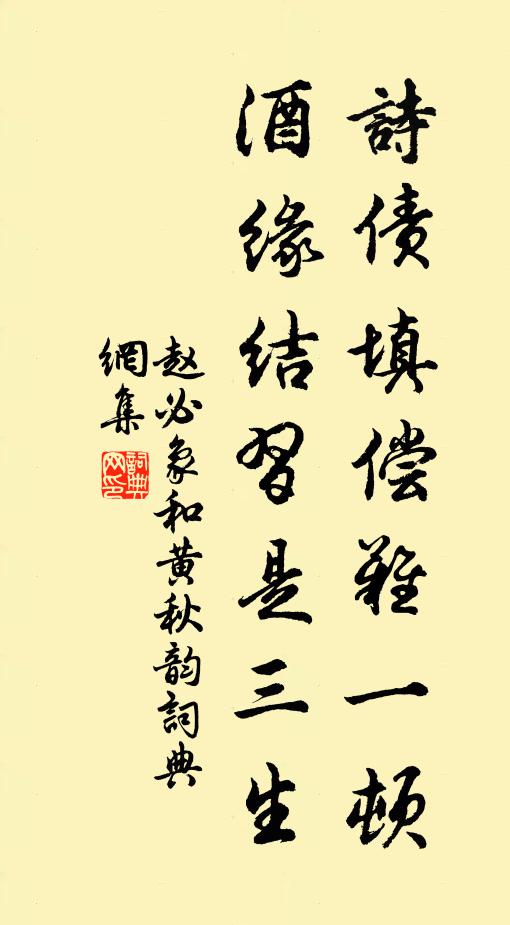 詩债填偿難一頓
酒缘结習是三生
赵必象和黄秋韵詞典
網集
詞典
网印